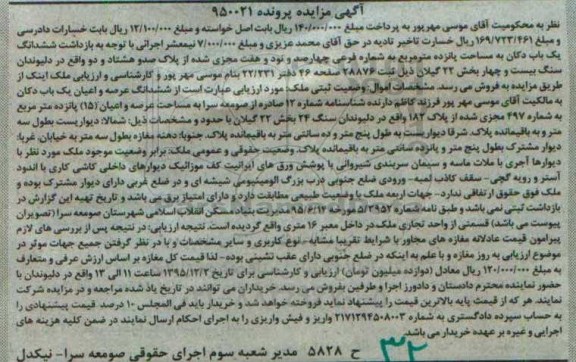 آگهی مزایده پرونده ۹۵۰۰۲۱
نظر به محکومیت آقای موسی مهرپور به پرداخت مبلغ ۱۴۰/۰۰۰/۰۰۰ ریال بابت اصل خواسته و مبلغ ۱۲/۱۰۰/۰۰۰ ریال بابت خسارات دادرسی
و مبلغ ۱۶۹/۷۲۳/۴۶۱ ریال خسارت تاخیر تادیه در حق آقای محمد عزیزی و مبلغ ۷/۰۰۰/۰۰۰ نیمعشر اجرائی با توجه به بازداشت ششدانگ
یک باب دکان به مساحت پانزده مترمربع به شماره فرعی چهارصد و نود و هفت مجزی شده از پلاک صدو هشتاد و دو واقع در دلیوندان
سنگ بیست و چهار بخش ۲۲ گیلان ذیل ثبت ۲۸۸۷۶ صفحه ۴۶ دفتر ۲۲/۲۳۱ بنام موسی مهر پور و کارشناسی و ارزیابی ملک اینک از
طریق مزایده به فروش می رسد. مشخصات اموال: وضعیت ثبتی ملک: مورد ارزیابی عبارت است از ششدانگ عرصه و اعیان یک باب دکان
به مالکیت آقای موسی مهر پور فرزند کاظم دارنده شناسنامه شماره ۱۲ صادره از صومعه سرا به مساحت عرصه و اعیان (۱۵) پانزده متر مربع
به شماره ۴۹۷ مجزی شده از پلاک ۱۸۲ واقع در دلیوندان سنگ ۲۴ بخش ۲۲ گیلان با حدود و مشخصات ذیل: شمالا: دیواریست بطول سه
متر و به باقیمانده پلاک. شرقا دیواریست به طول پنج متر و ده سانتی متر به باقیمانده پلاک. جنوبا: دهنه مغازه بطول سه متر به خیابان. غربا:
دیوار مشترک بطول پنج متر و پانزده سانتی متر به باقیمانده پلاک. وضعیت حقوقی و عمومی ملک: برابر وضعیت موجود ملک مورد نظر با
دیوارها آجری با ملات ماسه و سیمان سربندی شیروانی با پوشش ورق های ایرانیت کف موزائیک دیوارهای داخلی کاشی کاری با اندود
آستر و رویه گچی- سقف کاذب لمبه- ورودی ضلع جنوبی درب بزرگ آلومینیومی شیشه ای و در ضلع غربی دارای دیوار مشترک بوده و
ملک فوق حقوق ارتفاقی ندارد- جهات اربعه ملک با وضعیت طبیعی مطابقت دارد و دارای امتیاز برق می باشد و تاریخ تهیه این گزارش در
بازداشت ثبتی نمی باشد و طبق نامه شماره ۵/۳۹۵۲ مورخه ۹۵/۶/۱۴ مدیریت بنیاد مسکن انقلاب اسلامی شهرستان صومعه سرا (تصویران
پیوست می باشد) قسمتی از واحد تجاری ملک در داخل معبر ۱۶ متری واقع گردیده است. نتیجه ارزیابی: در نتیجه پس از بررسی های لازم
پیرامون قیمت عادلانه مغازه های مجاور با شرایط تقریبا مشابه- نوع کاربری و سایر مشخصات و با در نظر گرفتن جمیع جهات موثر در
موضوع ارزیابی به روز مغازه و با علم به اینکه در ضلع جنوبی دارای عقب نشینی بوده- لذا قیمت کل مغازه بر اساس ارزش عرفی و متعارف
به مبلغ ۱۲۰/۰۰۰/۰۰۰ ریال معادل (دوازده میلیون تومان) ارزیابی و کارشناسی برای تاریخ ۱۳۹۵/۱۲/۲ ساعت ۱۱ الی ۱۳ واقع در دلیوندان با
حضور نماینده محترم دادستان و دادورز اجرا و طرفین بفروش می رسد. خریداران می توانند در تاریخ یاد شده مراجعه و در مزایده شرکت
نمایند. هر که از قیمت پایه بالاترین قیمت را پیشنهاد نماید فروخته خواهد شد و خریدار باید فی المجلس ۱۰ درصد قیمت پیشنهادی را
به حساب سپرده دادگستری به شماره ۲۱۷۱۲۹۴۵۰۸۰۰۳ واریز و فیش واریزی را به اجرای احکام ارسال نمایند در ضمن کلیه هزینه های
اجرایی و غیره بر عهده خریدار می باشد.
ح ۵۸۲۸ مدیر شعبه سوم اجرای حقوقی صومعه سرا- نیکدل
۳۲